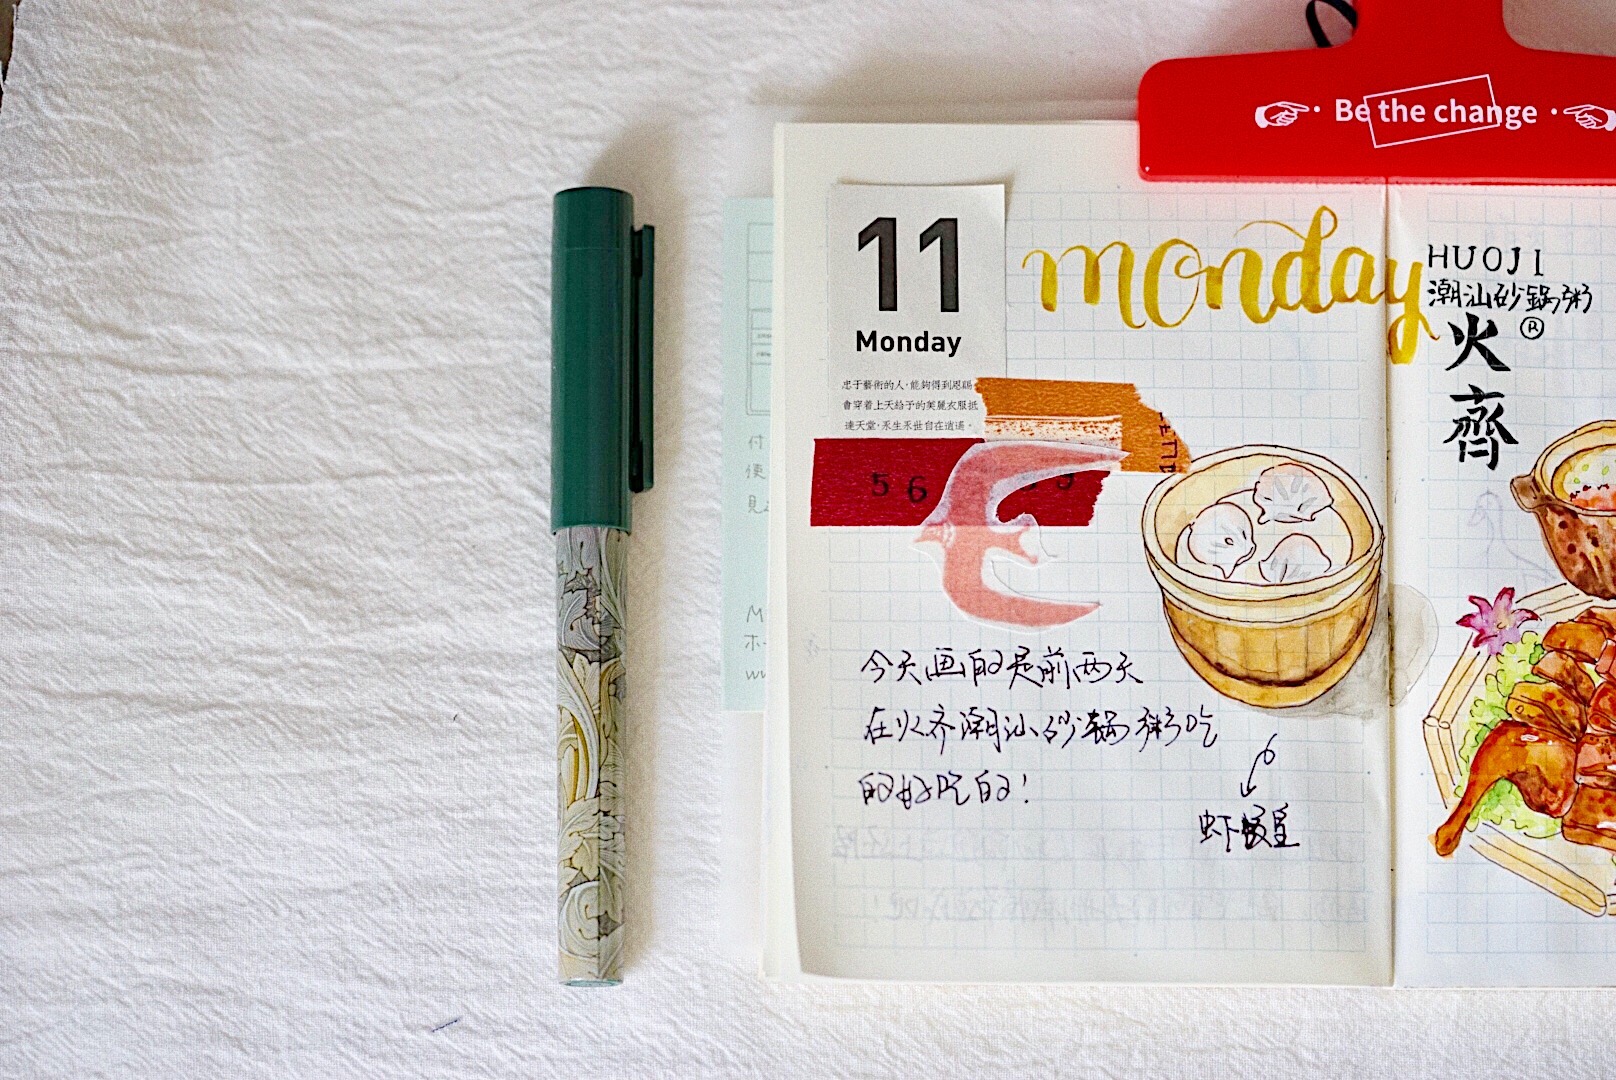 Be the change
11
Monday
忠于藝術的人,能夠得到恩賜
會穿着上天給予的美麗衣服抵
達天堂,永生永世自在逍遙。
monday
56
今天画的是前两天
在火齐潮汕砂锅粥吃
的好吃的!
虾饺皇
HUOJI
潮汕砂鍋粥
火®
齊
付
便
見
M
ホー
ww